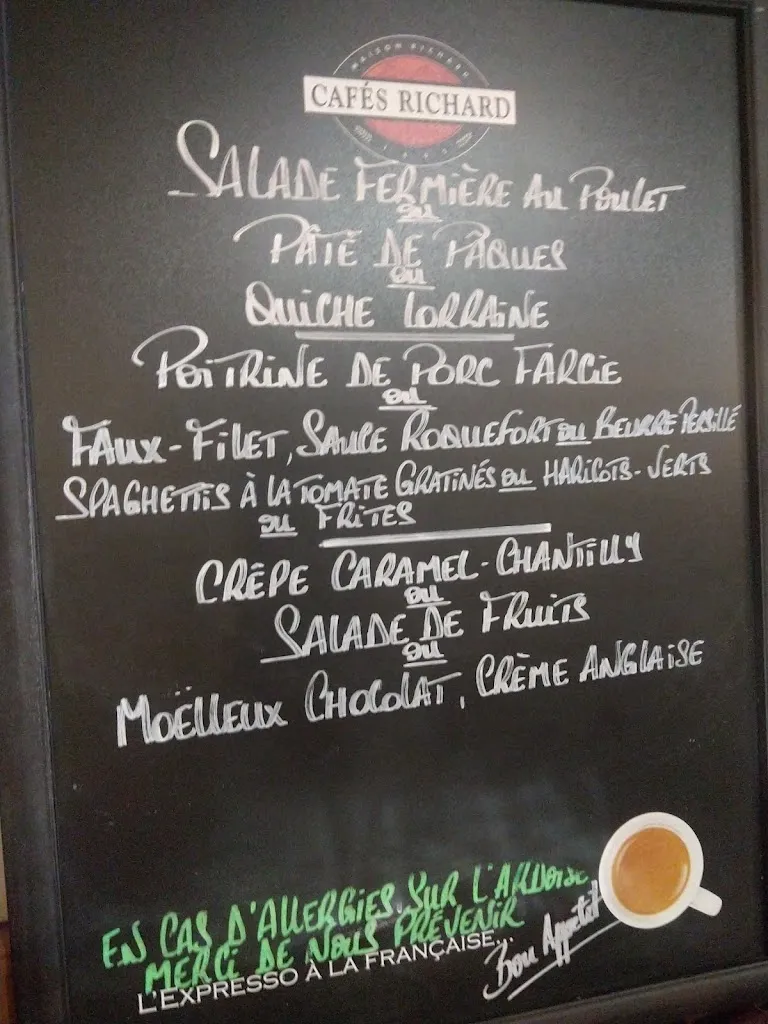 MAISON RICHARD
CAFÉS RICHARD
SALADE FERMIÈRE AU POULET
OU
PÂTÉ DE PÂQUES
OU
QUICHE LORRAINE
POITRINE DE PORC FARCIE
OU
FAUX-FILET, SAUCE ROQUEFORT OU BEURRE PERSILLÉ
SPAGHETTIS À LA TOMATE GRATINÉS OU HARICOTS-VERTS
OU FRITES
CRÊPE CARAMEL-CHANTILLY
OU
SALADE DE FRUITS
OU
MOËLLEUX CHOCOLAT, CRÈME ANGLAISE
EN CAS D'ALLERGIES SUR L'ARDOISE
MERCI DE NOUS PRÉVENIR
L'EXPRESSO À LA FRANÇAISE...
Bon Appétit